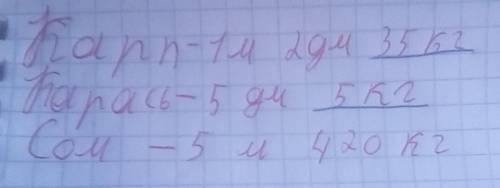 Карп-1м 2дм 35кг
Карась-5 дм 5кг
Сом -5 м 420кг